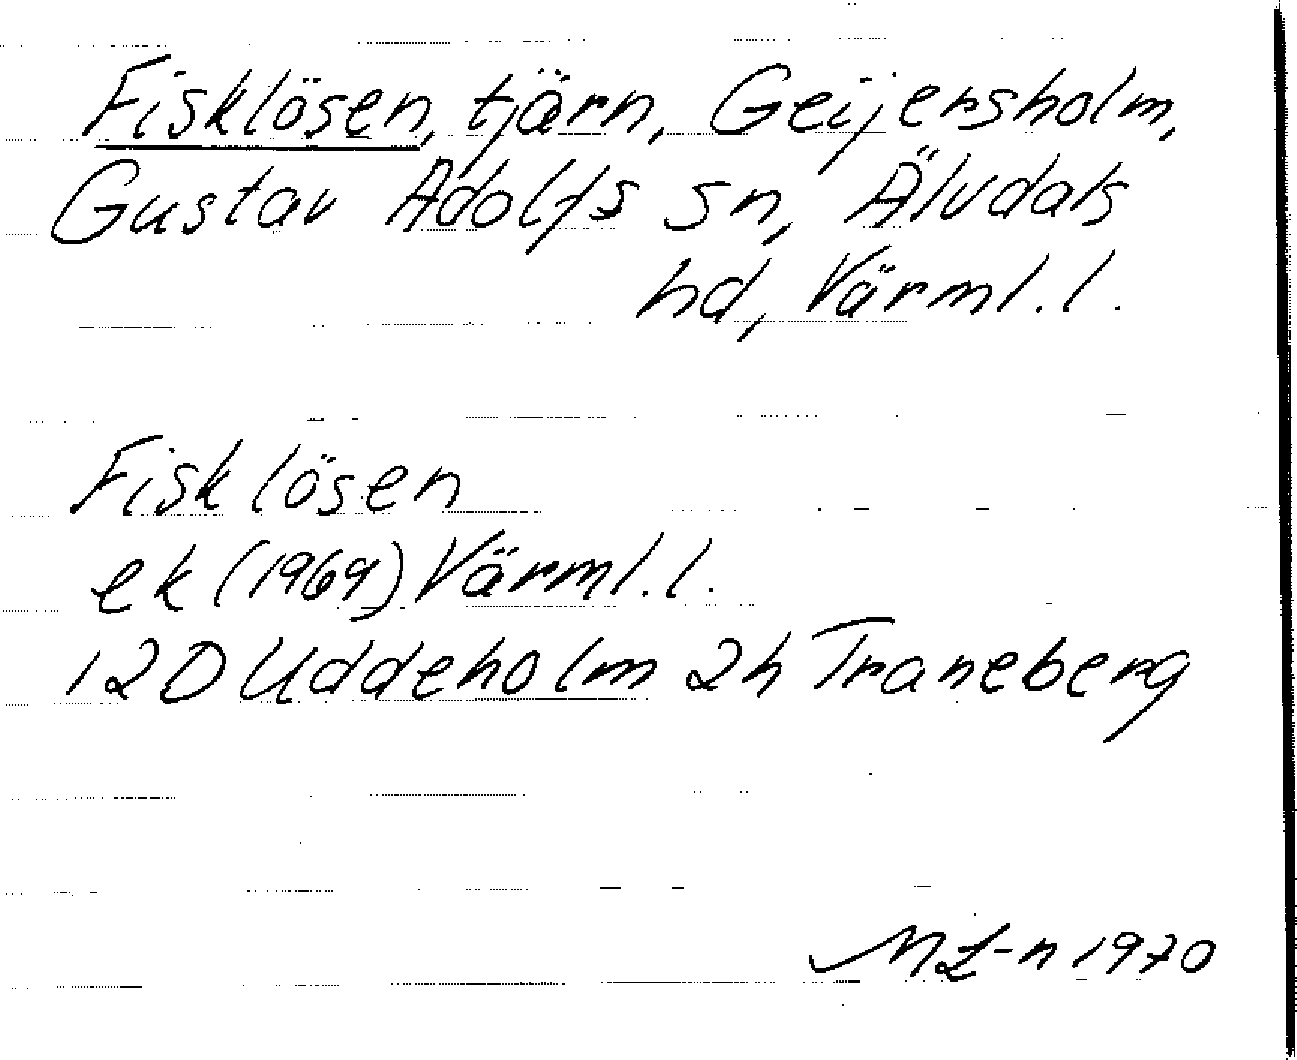 Fisklösen, tjärn, Geijersholm,
Gustav Adolfs sn, Älvdals
hd, Värml. l.
Fisklösen
ek (1969) Värml. l.
12D Uddeholm 2h Traneberg
ML-n 1970